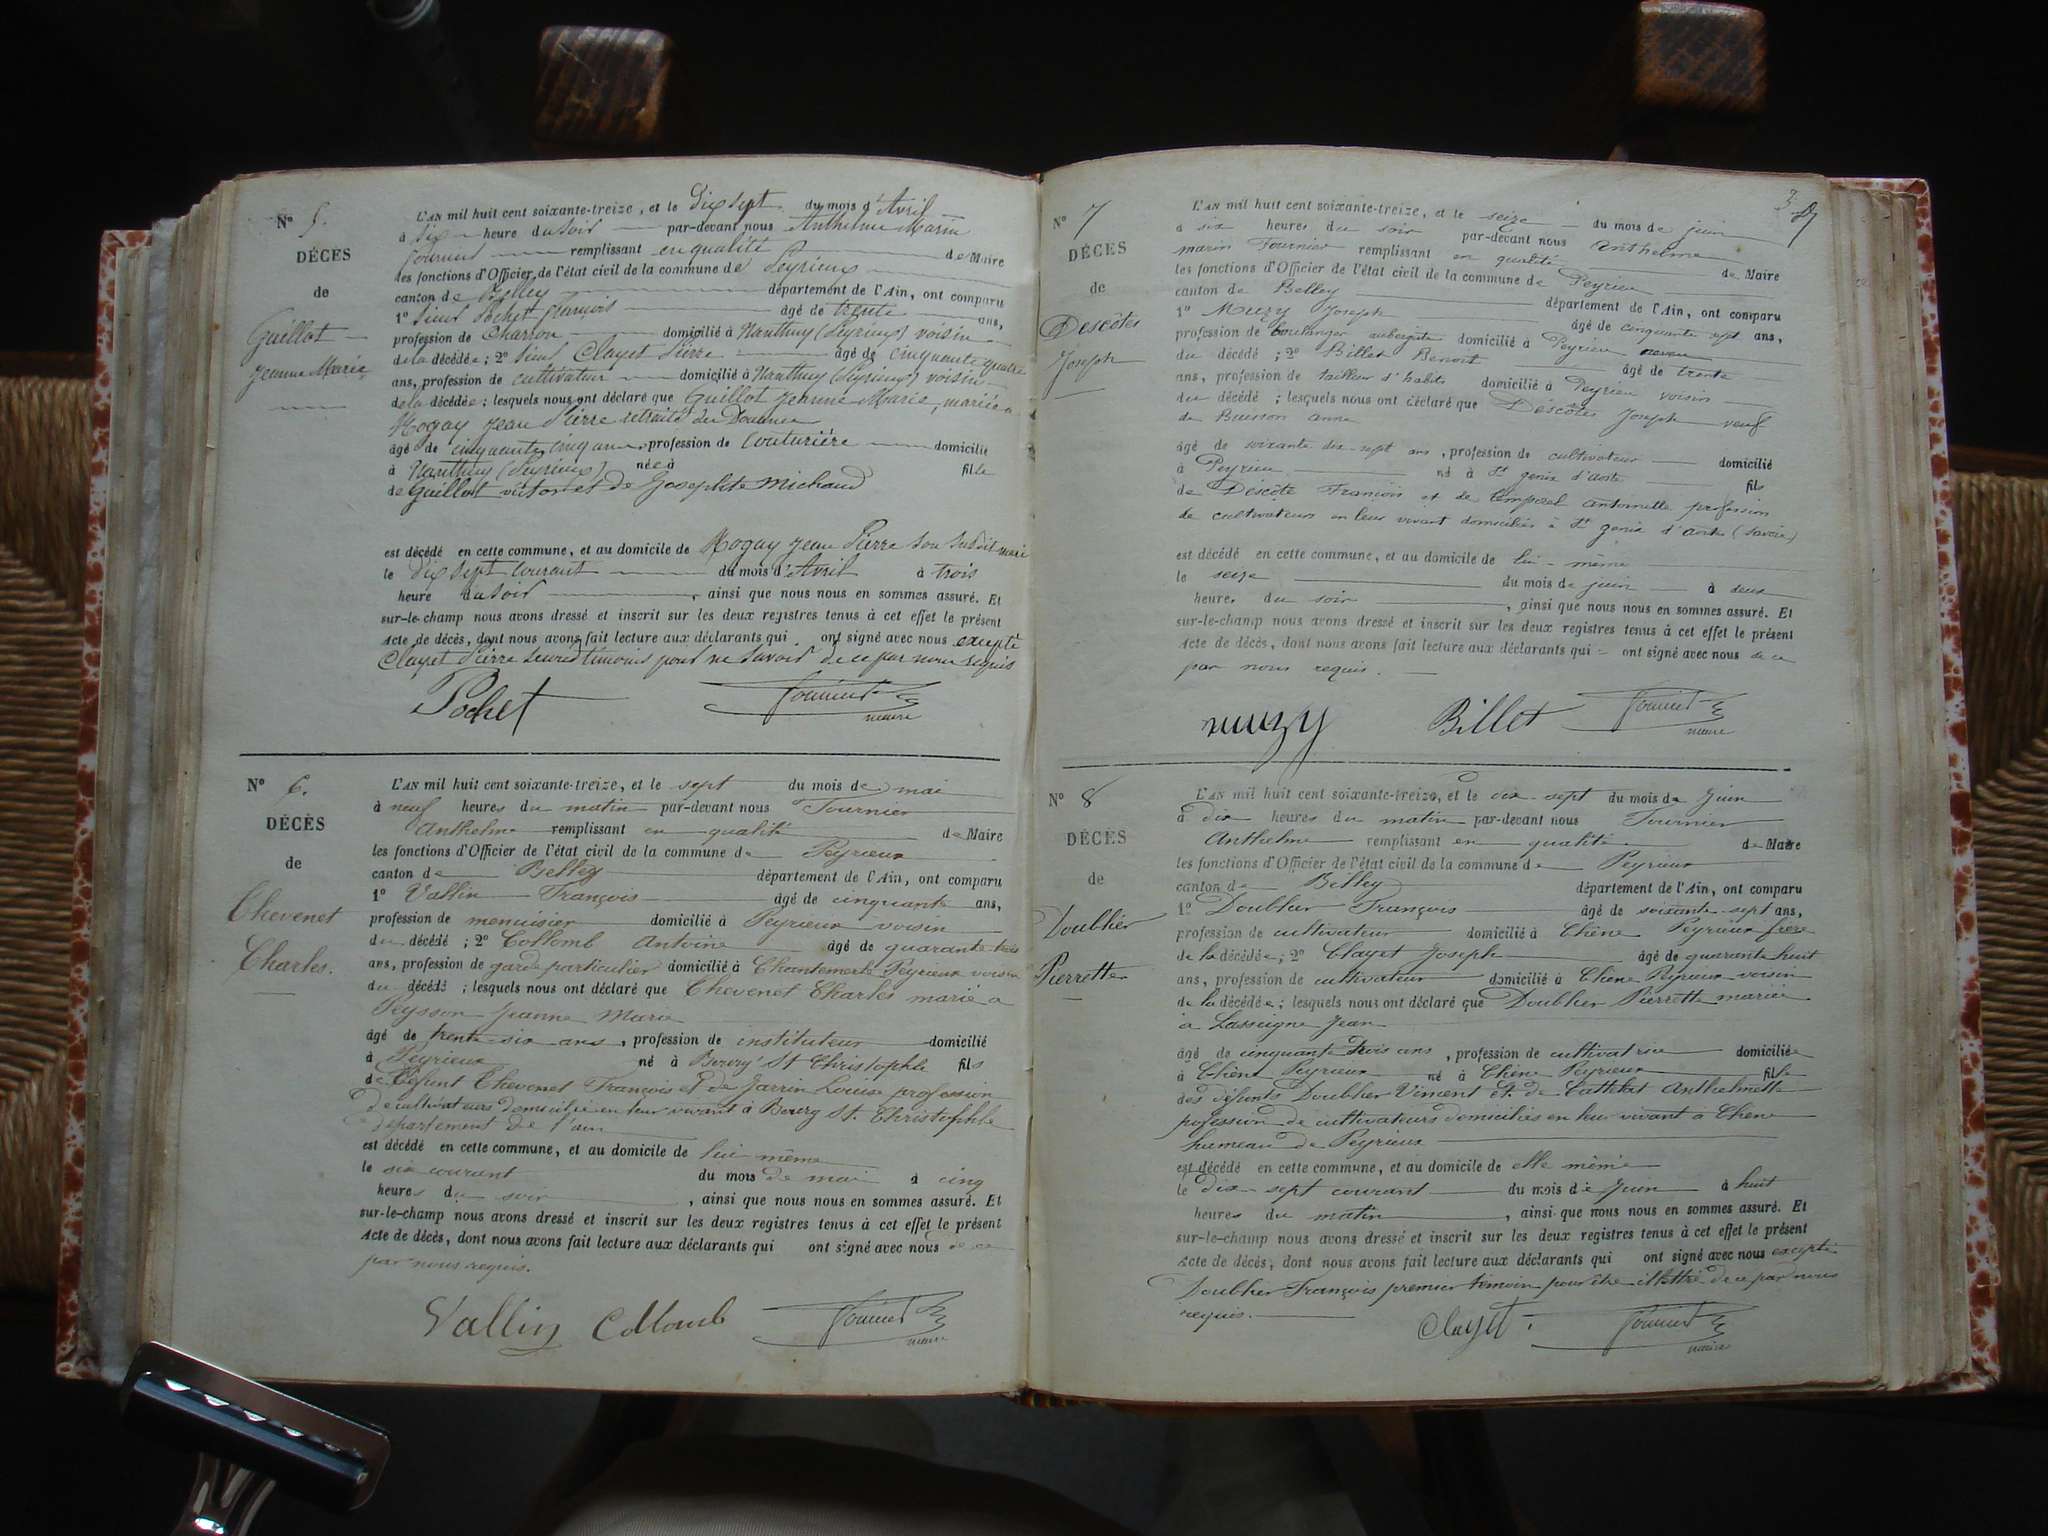 N° 5.
DÉCÈS
de
Guillot
Jeanne Marie
L'AN mil huit cent soixante-treize, et le dix sept du mois d'Avril
à six heure du soir par-devant nous Anthelme Marin
Fournier remplissant en qualité de Maire
les fonctions d'Officier de l'état civil de la commune de Peyrieux
canton de Belley département de l'Ain, ont comparu
1° Sieur Pochet François âgé de trente ans,
profession de Charron domicilié à Nanthuy (Peyrieux) voisin
de la décédée; 2° Sieur Clayet Pierre âgé de cinquante quatre
ans, profession de cultivateur domicilié à Nanthuy (Peyrieux) voisin
de la décédée; lesquels nous ont déclaré que Guillot Jeanne Marie, mariée à
Jean Pierre retraité des Douanes
âgé de cinquante cinq ans, profession de Couturière domicilié
à Nanthuy (Peyrieux) née à fille
de Guillot victor et de Josephte Michaud
est décédé en cette commune, et au domicile de Jean Pierre son susdit mari
le dix sept courant du mois d'Avril à trois
heure du soir, ainsi que nous nous en sommes assuré. Et
sur-le-champ nous avons dressé et inscrit sur les deux registres tenus à cet effet le présent
Acte de décès, dont nous avons fait lecture aux déclarants qui ont signé avec nous excepté
Clayet Pierre second témoin pour ne savoir de ce par nous requis
Pochet Fournier
maire
N° 6.
DÉCÈS
de
Chevenet
Charles.
L'AN mil huit cent soixante-treize, et le sept du mois de mai
à neuf heures du matin par-devant nous Fournier
Anthelme remplissant en qualité de Maire
les fonctions d'Officier de l'état civil de la commune de Peyrieux
canton de Belley département de l'Ain, ont comparu
1° Vallin François âgé de cinquante ans,
profession de menuisier domicilié à Peyrieux voisin
du décédé; 2° Collomb Antoine âgé de quarante trois
ans, profession de garde particulier domicilié à Chantemerle Peyrieux voisin
du décédé; lesquels nous ont déclaré que Chevenet Charles marié a
Peysson Jeanne Marie
âgé de trente six ans, profession de instituteur domicilié
à Peyrieux né à Bourg St Christophle fils
de Défunt Chevenet François et de Jarrin Louise profession
de cultivateurs domicilié en leur vivant à Bourg St. Christophle
département de l'ain
est décédé en cette commune, et au domicile de lui même
le six courant du mois de mai à cinq
heures du soir, ainsi que nous nous en sommes assuré. Et
sur-le-champ nous avons dressé et inscrit sur les deux registres tenus à cet effet le présent
Acte de décès, dont nous avons fait lecture aux déclarants qui ont signé avec nous de ce
par nous requis.
Vallin Collomb Fournier
maire
3
N° 7
DÉCÈS
de
Descôtes
Joseph
L'AN mil huit cent soixante-treize, et le seize du mois de juin
à six heures du soir par-devant nous Anthelme
marin Fournier remplissant en qualité de Maire
les fonctions d'Officier de l'état civil de la commune de Peyrieu
canton de Belley département de l'Ain, ont comparu
1° Muzy Joseph âgé de cinquante sept ans,
profession de boulanger aubergiste domicilié à Peyrieu neveu
du décédé; 2° Billet Benoit âgé de trente
ans, profession de tailleur d'habits domicilié à Peyrieu voisin
du décédé; lesquels nous ont déclaré que Descôtes Joseph veuf
de Buisson anne
âgé de soixante dix-sept ans, profession de cultivateur domicilié
à Peyrieu né à St genix d'aoste fils
de Déscôte François et de antoinette profession
de cultivateurs en leur vivant domiciliés à St genix d'aoste (savoie)
est décédé en cette commune, et au domicile de lui-même
le seize du mois de juin à deux
heures du soir, ainsi que nous nous en sommes assuré. Et
sur-le-champ nous avons dressé et inscrit sur les deux registres tenus à cet effet le présent
Acte de décès, dont nous avons fait lecture aux déclarants qui ont signé avec nous de ce
par nous requis.
muzy Billet Fournier
maire
N° 8
DÉCÈS
de
Doublier
Pierrette
L'AN mil huit cent soixante-treize, et le dix-sept du mois de Juin
à dix heures du matin par-devant nous Fournier
Anthelme remplissant en qualité de Maire
les fonctions d'Officier de l'état civil de la commune de Peyrieux
canton de Belley département de l'Ain, ont comparu
1° Doublier François âgé de soixante-sept ans,
profession de cultivateur domicilié à Chêne Peyrieux frère
de la décédée; 2° Clayet Joseph âgé de quarante huit
ans, profession de cultivateur domicilié à Chêne Peyrieux voisin
de la décédée; lesquels nous ont déclaré que Doublier Pierrette mariée
à Lassaigne Jean
âgé de cinquante trois ans, profession de cultivatrice domiciliée
à Chêne Peyrieux né à Chêne Peyrieux fille
des défunts Doublier Vincent et de Anthelmette
profession de cultivateurs domiciliés en leur vivant à Chêne
hameau de Peyrieux
est décédé en cette commune, et au domicile de elle même
le dix-sept courant du mois de Juin à huit
heures du matin, ainsi que nous nous en sommes assuré. Et
sur-le-champ nous avons dressé et inscrit sur les deux registres tenus à cet effet le présent
Acte de décès, dont nous avons fait lecture aux déclarants qui ont signé avec nous excepté
Doublier François premier témoin pour être illettré de ce par nous
requis.
Clayet Fournier
maire